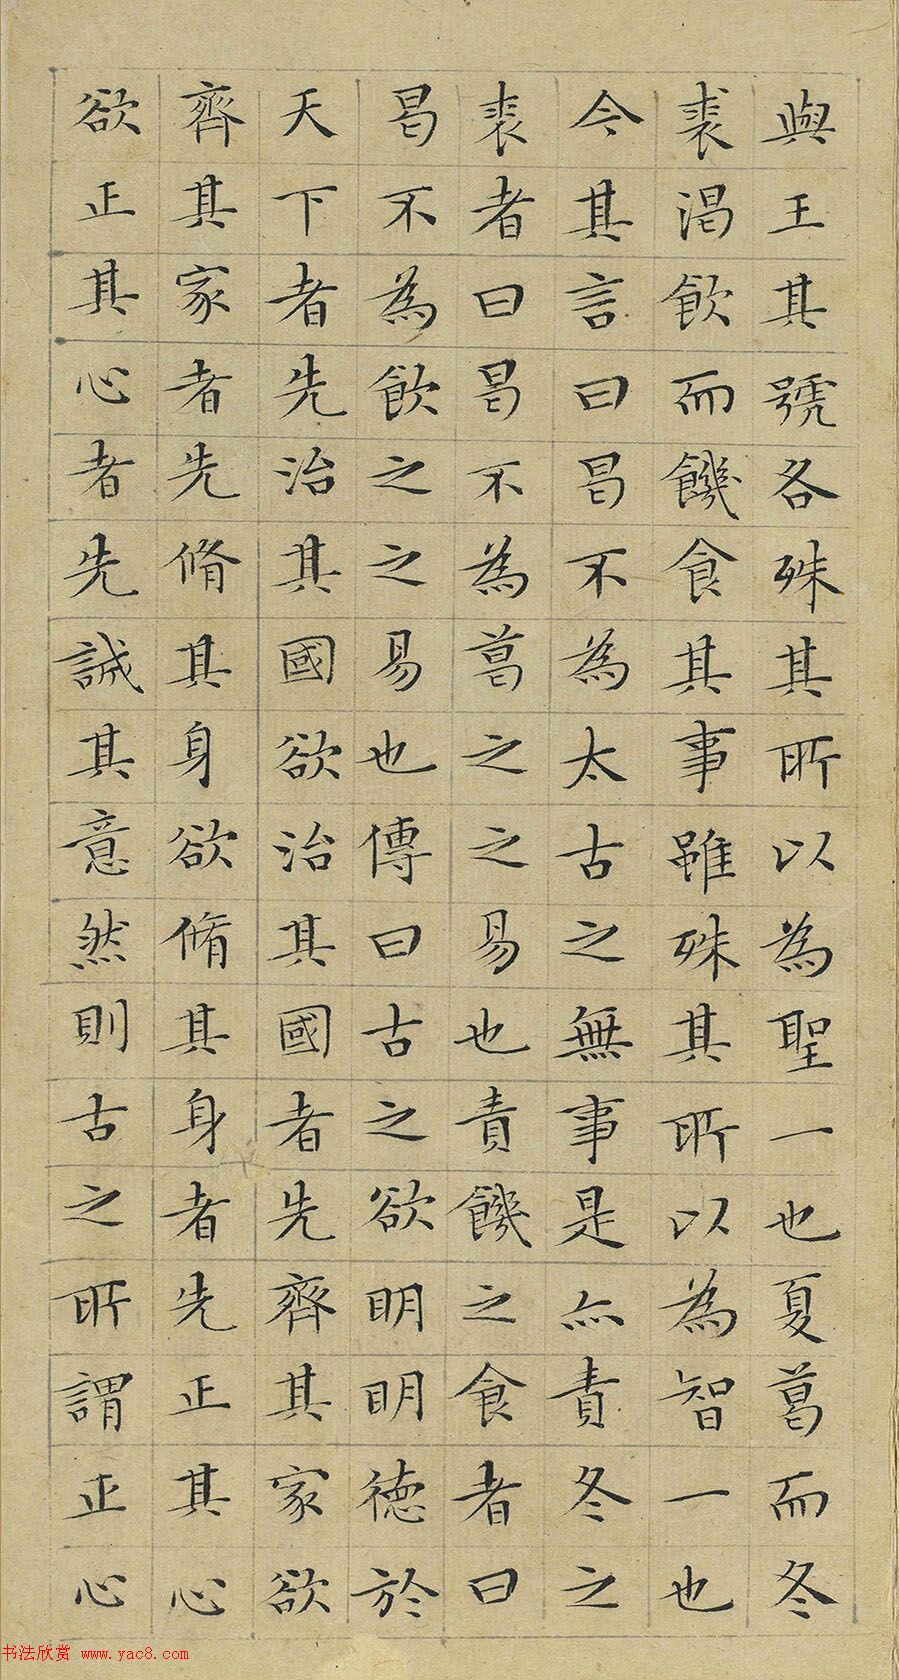 與王其號各殊其所以為聖一也夏葛而冬
裘渴飲而饑食其事雖殊其所以為智一也
今其言曰曷不為太古之無事是亦責冬之
裘者曰曷不為葛之之易也責饑之食者曰
曷不為飲之之易也傳曰古之欲明明德於
天下者先治其國欲治其國者先齊其家欲
齊其家者先脩其身欲脩其身者先正其心
欲正其心者先誠其意然則古之所謂正心
书法欣赏 www.yac8.com